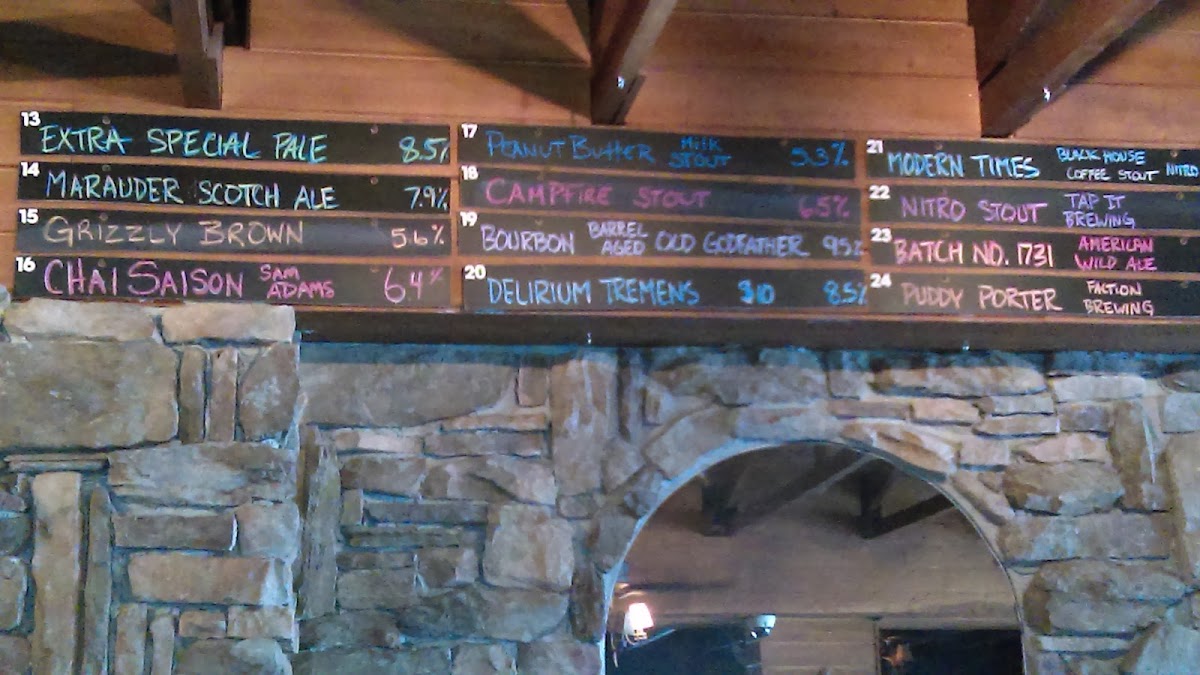 13 EXTRA SPECIAL PALE 8.5%
14 MARAUDER SCOTCH ALE 7.9%
15 GRIZZLY BROWN 5.6%
16 CHAI SAISON SAM ADAMS 6.4%
17 PEANUT BUTTER MILK STOUT 5.3%
18 CAMPFIRE STOUT 6.5%
19 BOURBON BARREL AGED OLD GODFATHER 95%
20 DELIRIUM TREMENS $10 8.5%
21 MODERN TIMES BLACK HOUSE COFFEE STOUT NITRO
22 NITRO STOUT TAP IT BREWING
23 BATCH NO. 1731 AMERICAN WILD ALE
24 PUDDY PORTER FACTION BREWING